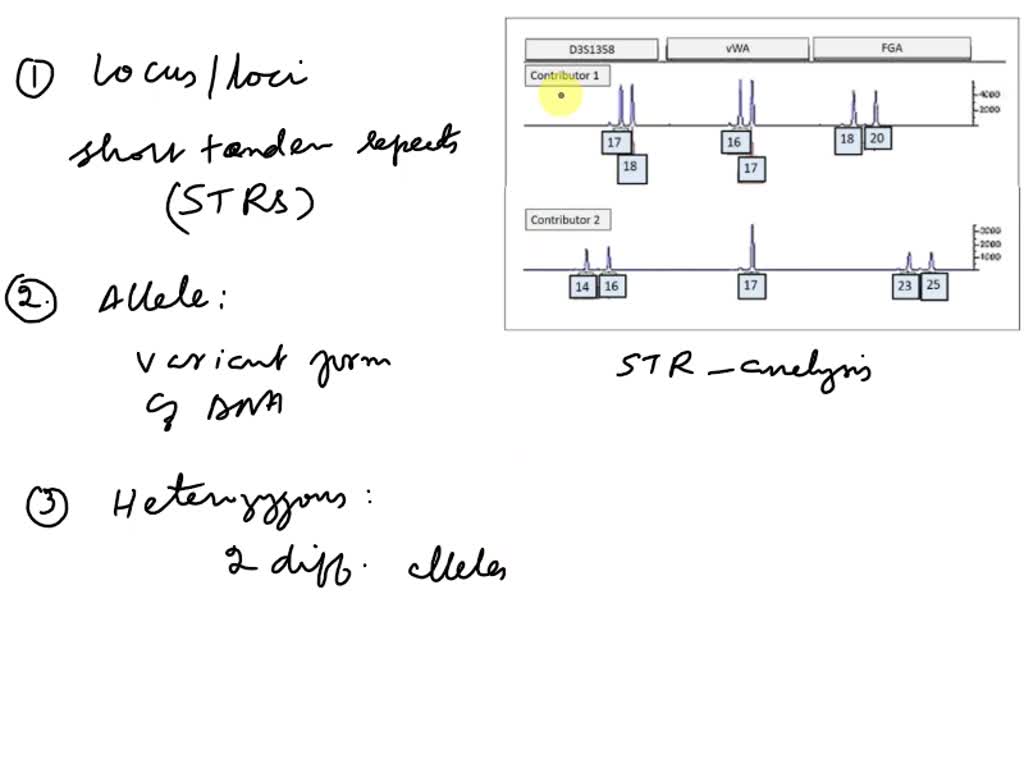 ① Locus/loci
short tandem repeats
(STRs)
② Allele:
variant form
of DNA
③ Heterozygous:
2 diff. alleles
D3S1358 vWA FGA
Contributor 1
4000
2000
17 16 18 20
18 17
Contributor 2
3000
2000
1000
14 16 17 23 25
STR-analysis